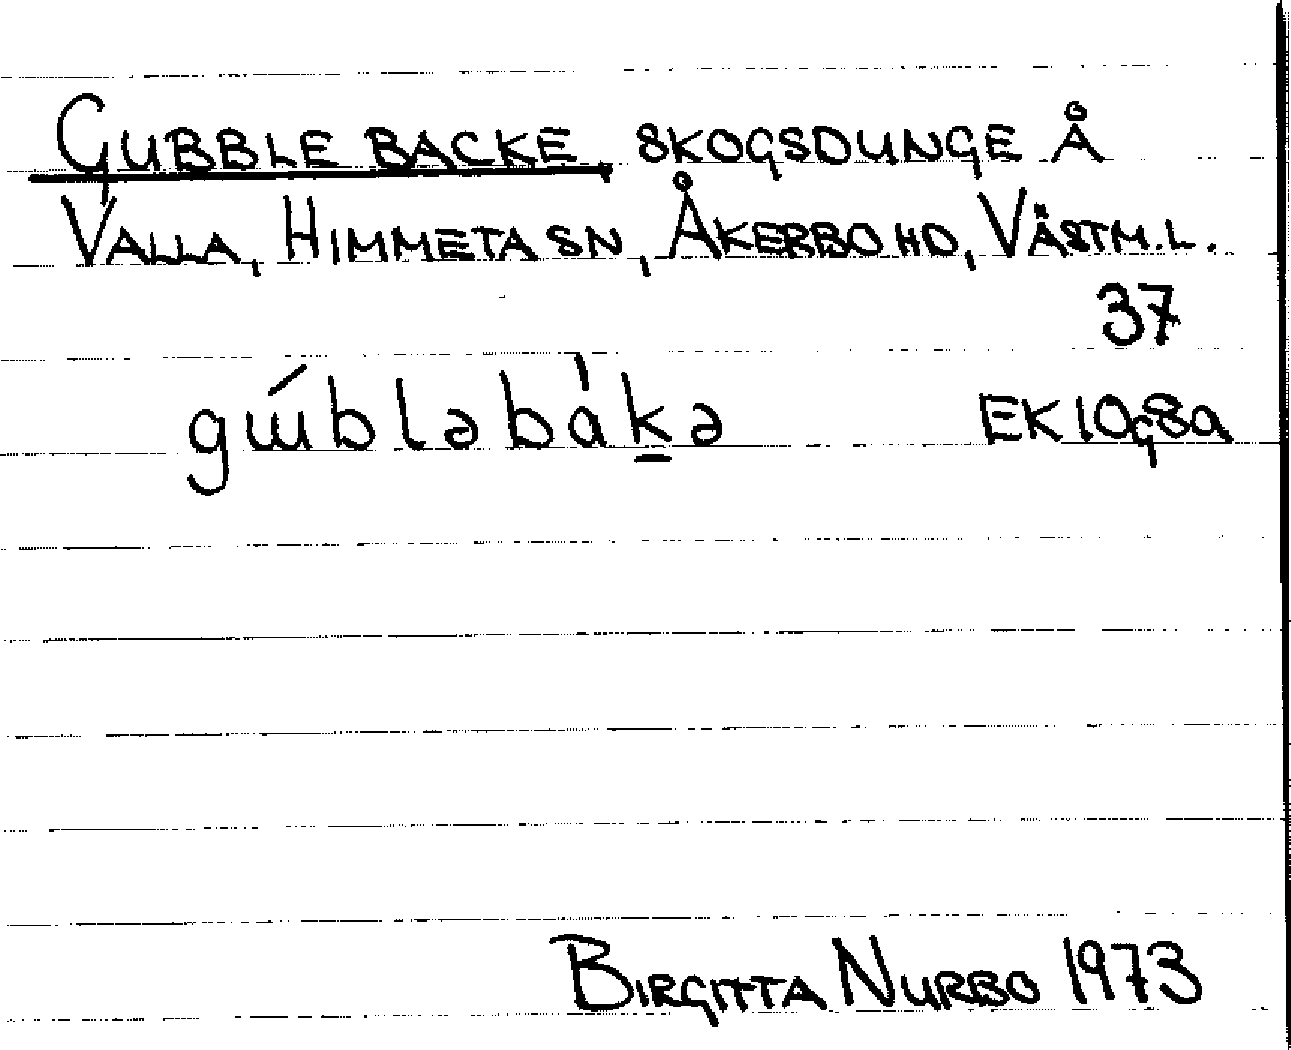 GUBBLE BACKE, SKOGSDUNGE Å
VALLA, HIMMETA SN, ÅKERBO HD, VÄSTM.L.
37
gɯ́bləbàk̲ə EK 10g8a
BIRGITTA NURBO 1973